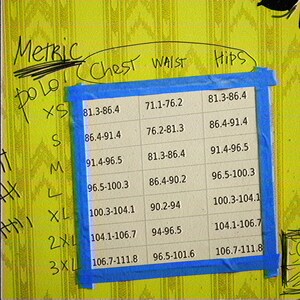 METRIC
polo:
CHEST WAIST HIPS
XS 81.3-86.4 71.1-76.2 81.3-86.4
S 86.4-91.4 76.2-81.3 86.4-91.4
M 91.4-96.5 81.3-86.4 91.4-96.5
L 96.5-100.3 86.4-90.2 96.5-100.3
XL 100.3-104.1 90.2-94 100.3-104.1
2XL 104.1-106.7 94-96.5 104.1-106.7
3XL 106.7-111.8 96.5-101.6 106.7-111.8